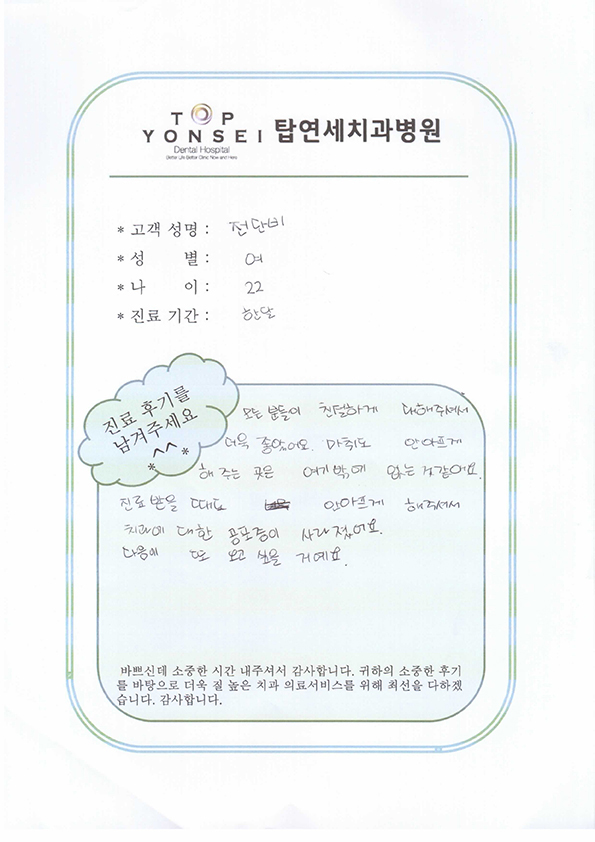 TOP
YONSEI 탑연세치과병원
Dental Hospital
Better Life Better Clinic Now and Here
* 고객 성명 : 전단비
* 성 별 : 여
* 나 이 : 22
* 진료 기간 : 한달
진료 후기를
남겨주세요
* ^^ *
모든 분들이 친절하게 대해주셔서
더욱 좋았어요. 마취도 안아프게
해 주는 곳은 여기밖에 없는 거같어요.
진료 받을 때도 안아프게 해주셔서
치과에 대한 공포증이 사라졌어요.
다음에 또 오고 싶을 거예요.
바쁘신데 소중한 시간 내주셔서 감사합니다. 귀하의 소중한 후기
를 바탕으로 더욱 질 높은 치과 의료서비스를 위해 최선을 다하겠
습니다. 감사합니다.